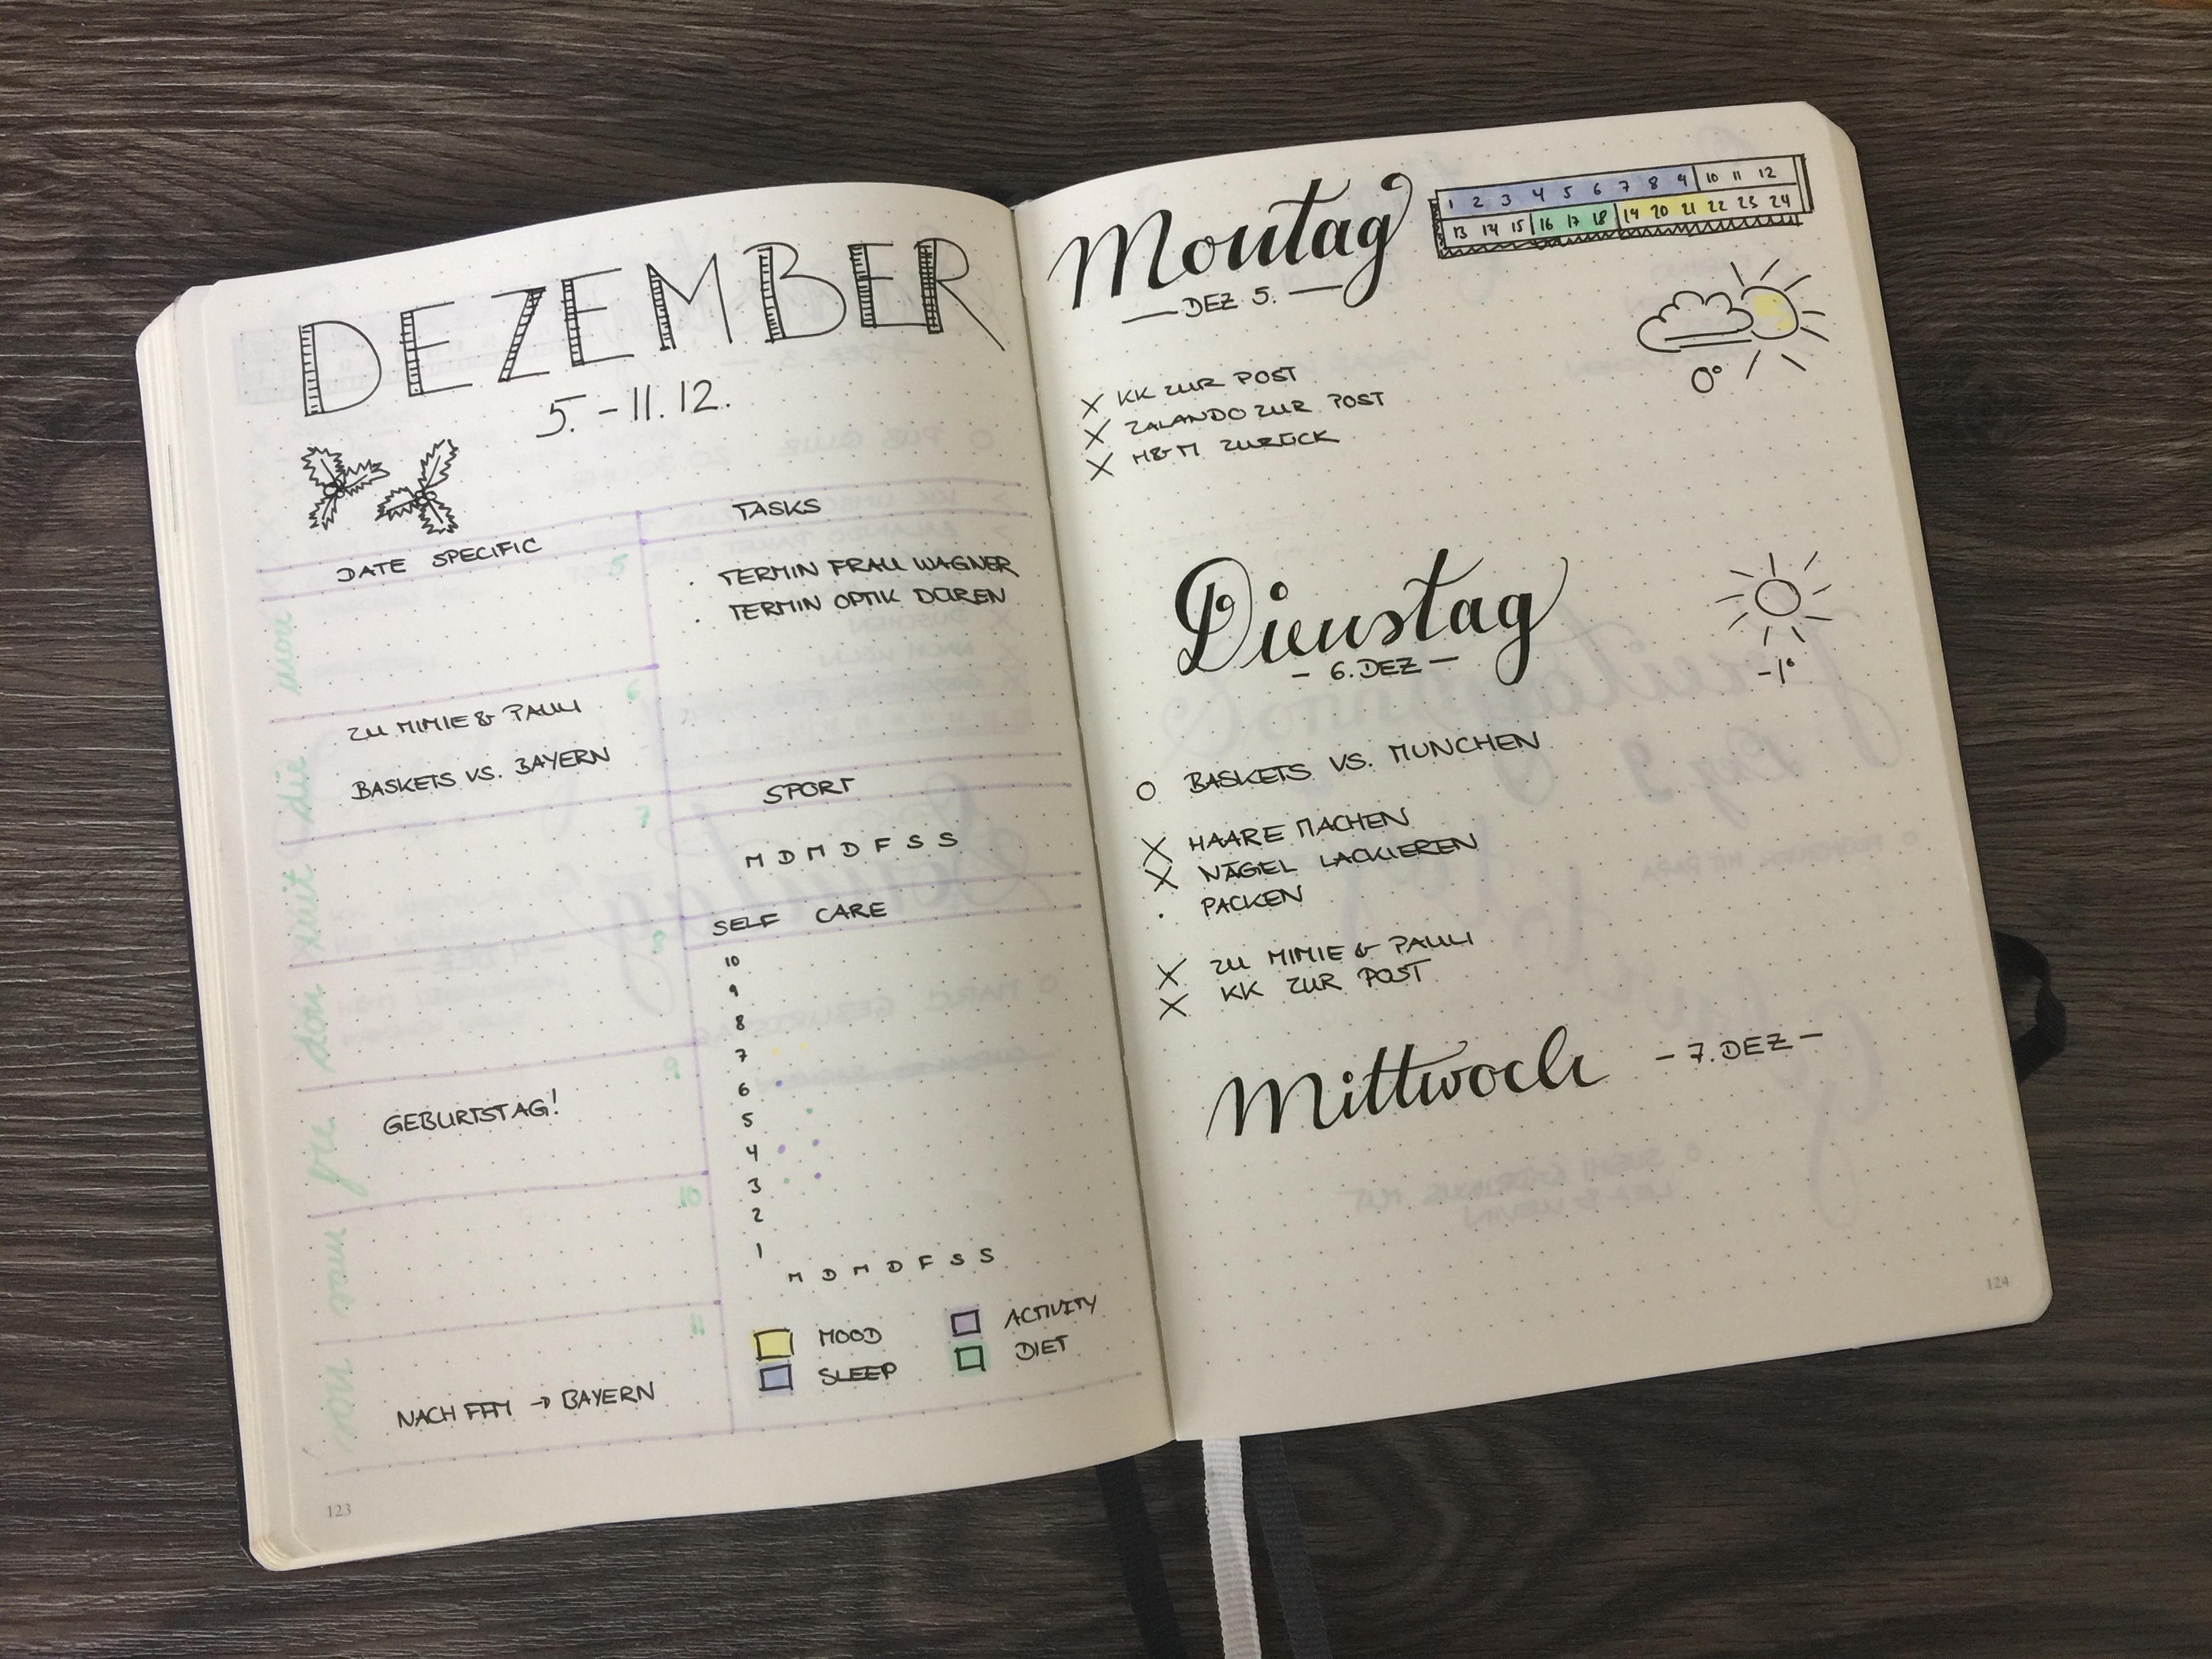 DEZEMBER
5.-11.12.
DATE SPECIFIC
mon
5
die
6
ZU MIMIE & PAULI
BASKETS VS. BAYERN
7
don
8
fre
9
GEBURTSTAG!
10
11
NACH FFM → BAYERN
TASKS
· TERMIN FRAU WAGNER
· TERMIN OPTIK DÜREN
SPORT
M D M D F S S
SELF CARE
10
9
8
7
6
5
4
3
2
1
M D M D F S S
MOOD
ACTIVITY
SLEEP
DIET
123
Montag
— DEZ 5. —
1 2 3 4 5 6 7 8 9 10 11 12
13 14 15 16 17 18 19 20 21 22 23 24
0°
X KK ZUR POST
X ZALANDO ZUR POST
X H&M ZURÜCK
Dienstag
— 6. DEZ —
-1°
O BASKETS VS. MÜNCHEN
X HAARE MACHEN
X NÄGEL LACKIEREN
· PACKEN
X ZU MIMIE & PAULI
X KK ZUR POST
Mittwoch
— 7. DEZ —
124